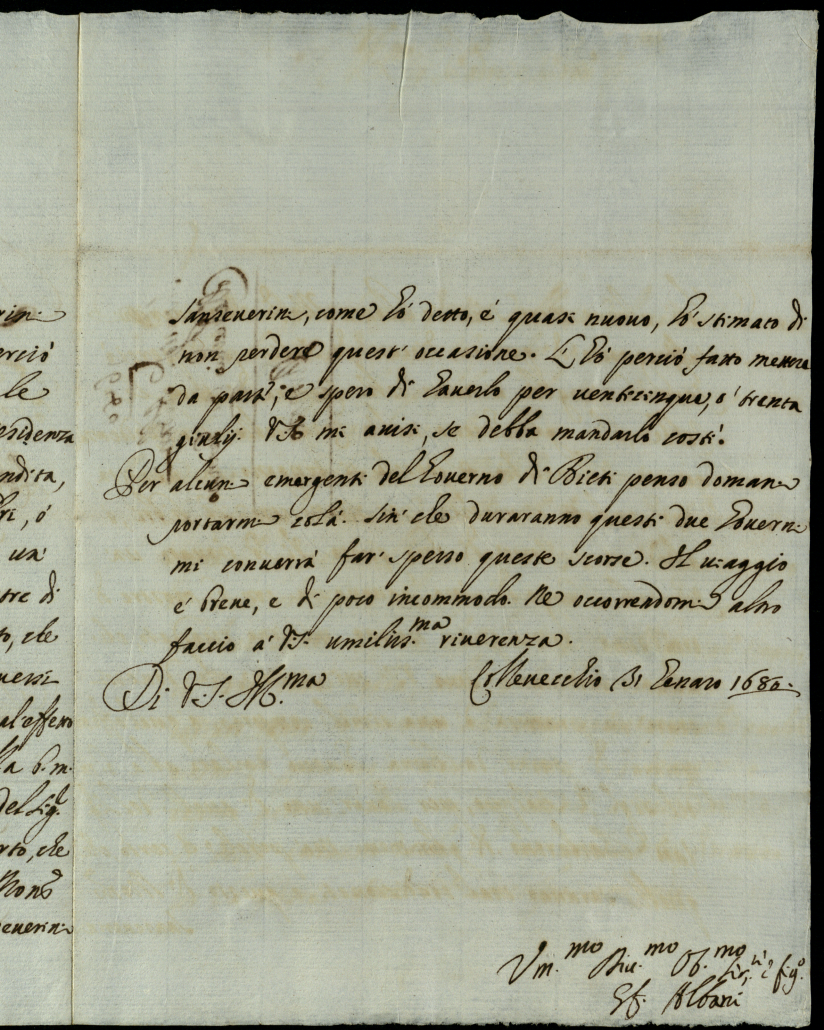 rin:
erciò
le
esidenza
ndita,
ri, ó
un'
tre di
to, che
uessi
al'effetto
la b. m.
del Sig.r
rto, che
Mons.r
euerin:
Sanseuerin:, come hò detto, è quasi nuouo, hò stimato di
non perdere quest' occasione. L' hò perciò fatto mettere
da parte; e spero di hauerlo per uenticinque, ò trenta
giulij. V.S. mi auisi, se debba mandarlo costì.
Per alcuni emergenti del Gouerno di Rieti penso domani
portarmi colà. Sin' che duraranno questi due Gouerni
mi conuerrà far' spesso queste scorse. Il uiaggio
è breue, e di poco incommodo. Ne occorrendomi altro
faccio à V.S. umiliss.ma riuerenza.
Di V.S. Ill.ma Colleuecchio 31 Genaro 1680.
Um.mo Diu.mo Ob.mo Ser.re e fig.o
Gf. Albani